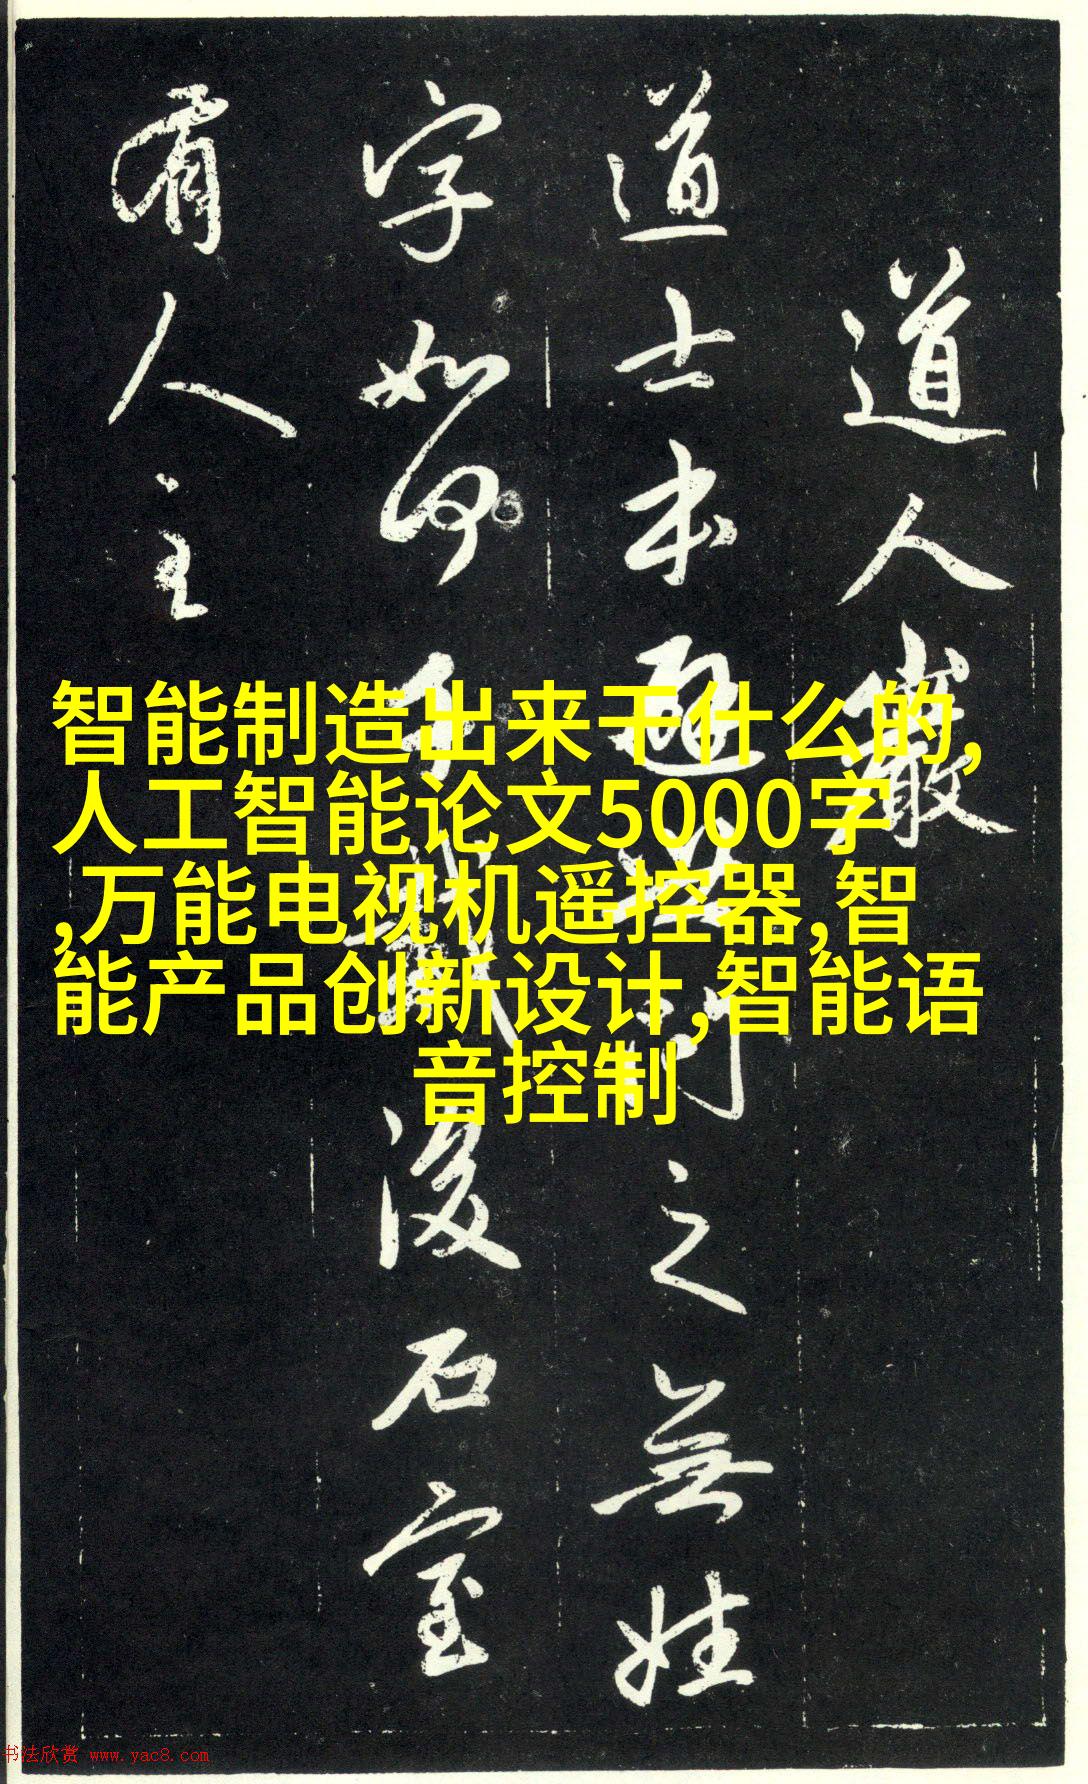 道人巖
道士本之無姓
字如何千載後石室
有人主
智能制造出来干什么的,
人工智能论文5000字
,万能电视机遥控器,智
能产品创新设计,智能语
音控制
书法欣赏 www.yac8.com